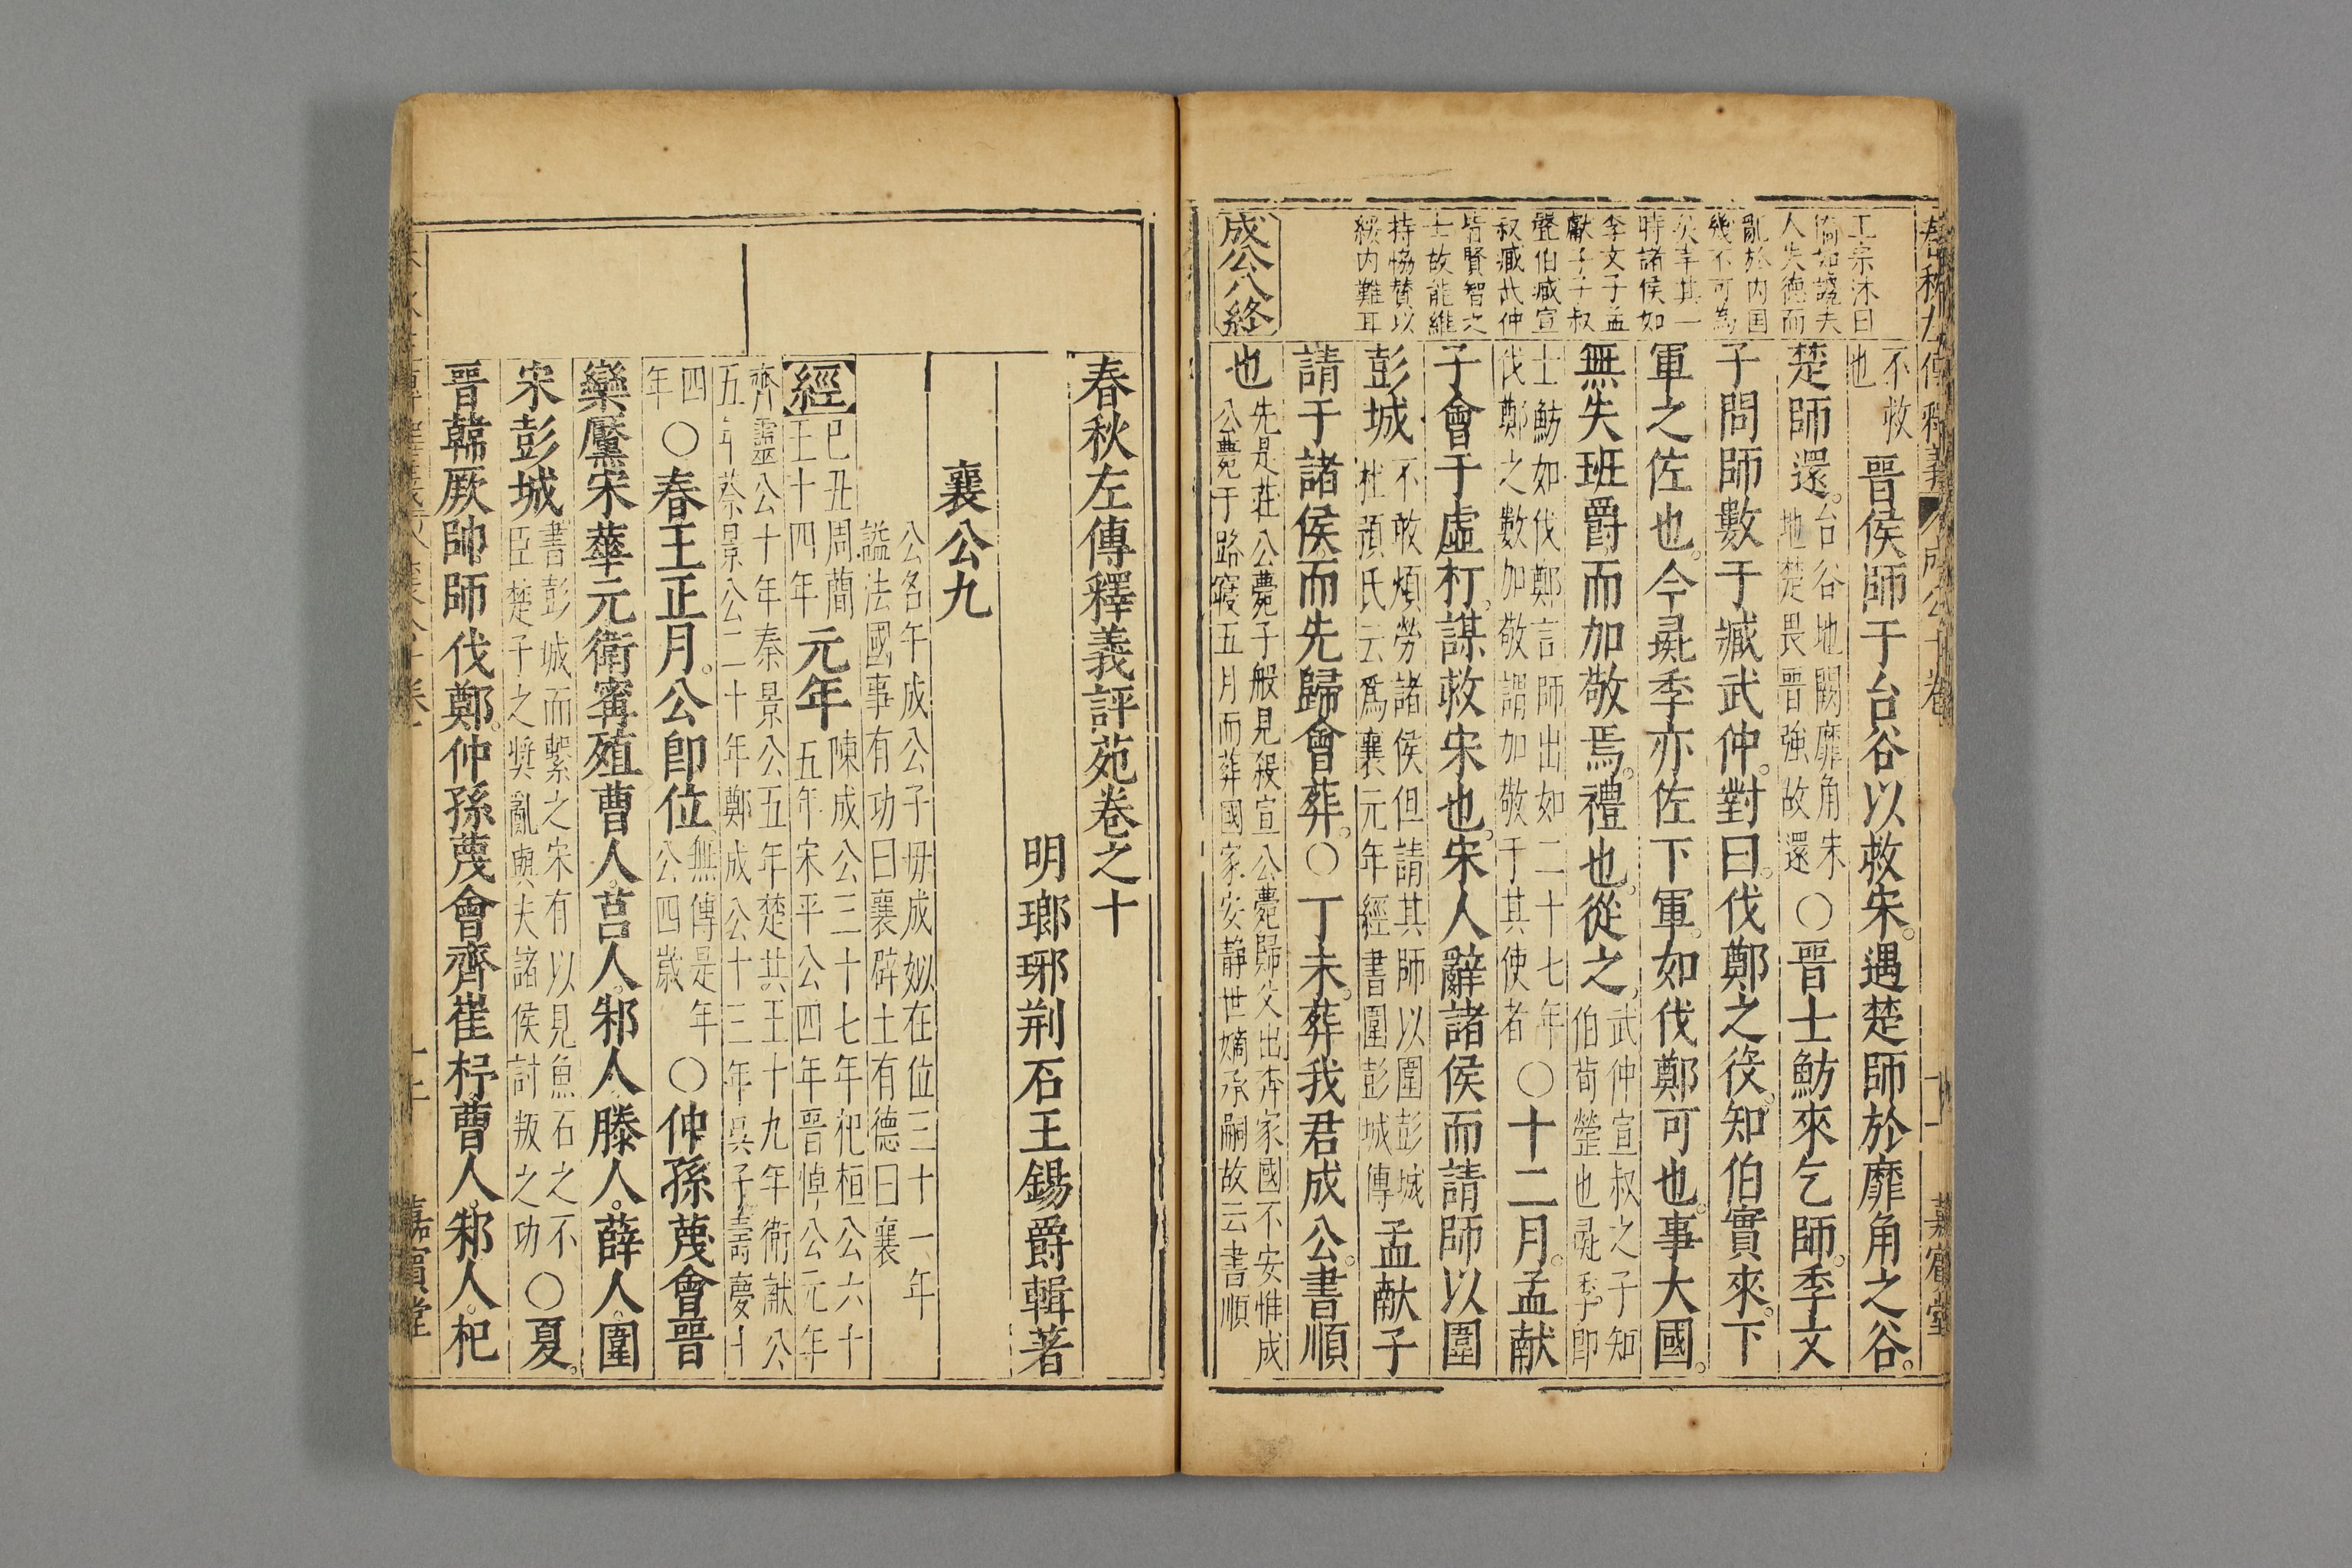 王宗沐曰
僑如譖夫
人失德而
亂於内国
幾不可為
矣幸其一
時諸侯如
季文子孟
獻子子叔
聲伯臧宣
叔臧武仲
皆賢智之
士故能維
持恊賛以
綏内難耳
成公八終
不救
也
晉侯師于台谷以救宋遇楚師於靡角之谷
楚師還
台谷地闕靡角宋
地楚畏晉強故還
○晉士魴來乞師季文
子問師數于臧武仲對曰伐鄭之役知伯實來下
軍之佐也今彘季亦佐下軍如伐鄭可也事大國
無失班爵而加敬焉禮也從之
武仲宣叔之子知
伯荀罃也彘季即
士魴如伐鄭言師出如二十七年
伐鄭之數加敬謂加敬于其使者
○十二月孟献
子會于虛朾謀救宋也宋人辭諸侯而請師以圍
彭城
不敢煩勞諸侯但請其師以圍彭城
杜預氏云爲襄元年經書圍彭城傳
孟献子
請于諸侯而先歸會葬○丁未葬我君成公書順
也
先是莊公薨子般見殺宣公薨歸父出奔家國不安惟成
公薨于路寢五月而葬國家安静世嫡承嗣故云書順
春秋左傳釋義評苑卷之十
明瑯琊荆石王錫爵輯著
襄公九
公名午成公子母成姒在位三十一年
諡法國事有功曰襄辟土有德曰襄
經
己丑周簡
王十四年
元年
陳成公三十七年杞桓公六十
五年宋平公四年晉悼公元年
齊靈公十年秦景公五年楚共王十九年衛献公
五年蔡景公二十年鄭成公十三年吳子壽慶十
四
年
○春王正月公即位
無傳是年
公四歲
○仲孫蔑會晉
欒黶宋華元衛甯殖曹人莒人邾人滕人薛人圍
宋彭城
書彭城而繫之宋有以見魚石之不
臣楚子之奬亂與夫諸侯討叛之功
○夏
晉韓厥帥師伐鄭仲孫蔑會齊崔杼曹人邾人杞
嘉賓堂